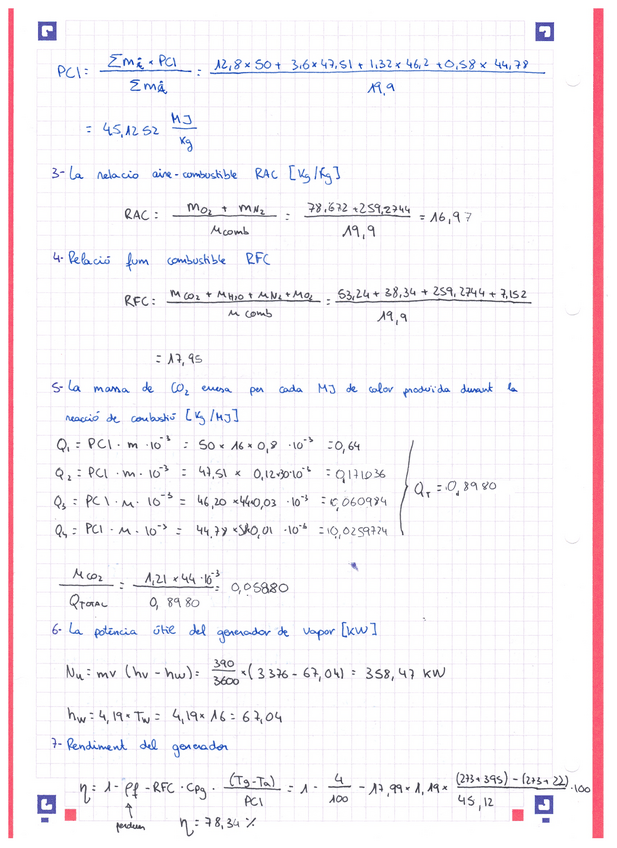 PCI = Σmi × PCI / Σmi = 12,8 × 50 + 3,6 × 47,51 + 1,32 × 46,2 + 0,58 × 44,78 / 19,9
= 45,1252 MJ/Kg
3- La relacio aire-combustible RAC [Kg/Kg]
RAC: mO2 + mN2 / mcomb = 78,672 + 259,2744 / 19,9 = 16,97
4- Relació fum combustible RFC
RFC: mCO2 + mH2O + mN2 + mO2 / m comb = 53,24 + 38,34 + 259,2744 + 7,152 / 19,9
= 17,95
5- La massa de CO2 emesa per cada MJ de calor produida durant la
reacció de combustió [Kg/MJ]
Q1 = PCI · m · 10⁻³ = 50 × 16 × 0,8 · 10⁻³ = 0,64
Q2 = PCI · m · 10⁻³ = 47,51 × 0,12×30·10⁻³ = 0,171036
Q3 = PCI · m · 10⁻³ = 46,20 × 44×0,03 · 10⁻³ = 0,060984
QT = 0,8980
Q4 = PCI · m · 10⁻³ = 44,78 × 58×0,01 · 10⁻³ = 0,0259724
MCO2 / QTOTAL = 1,21 × 44·10⁻³ / 0,8980 = 0,05980
6- La potència útil del generador de vapor [KW]
Nu = mv (hv - hw) = 390/3600 × (3376 - 67,04) = 358,47 KW
hw = 4,19 × Tw = 4,19 × 16 = 67,04
7- Rendiment del generador
η = 1 - Pf - RFC · Cpg · (Tg-Ta) / PCI = 1 - 4/100 - 17,99 × 1,19 × (273+395) - (273+22) / 45,12 · 100
↑
perdues
η = 78,34 %